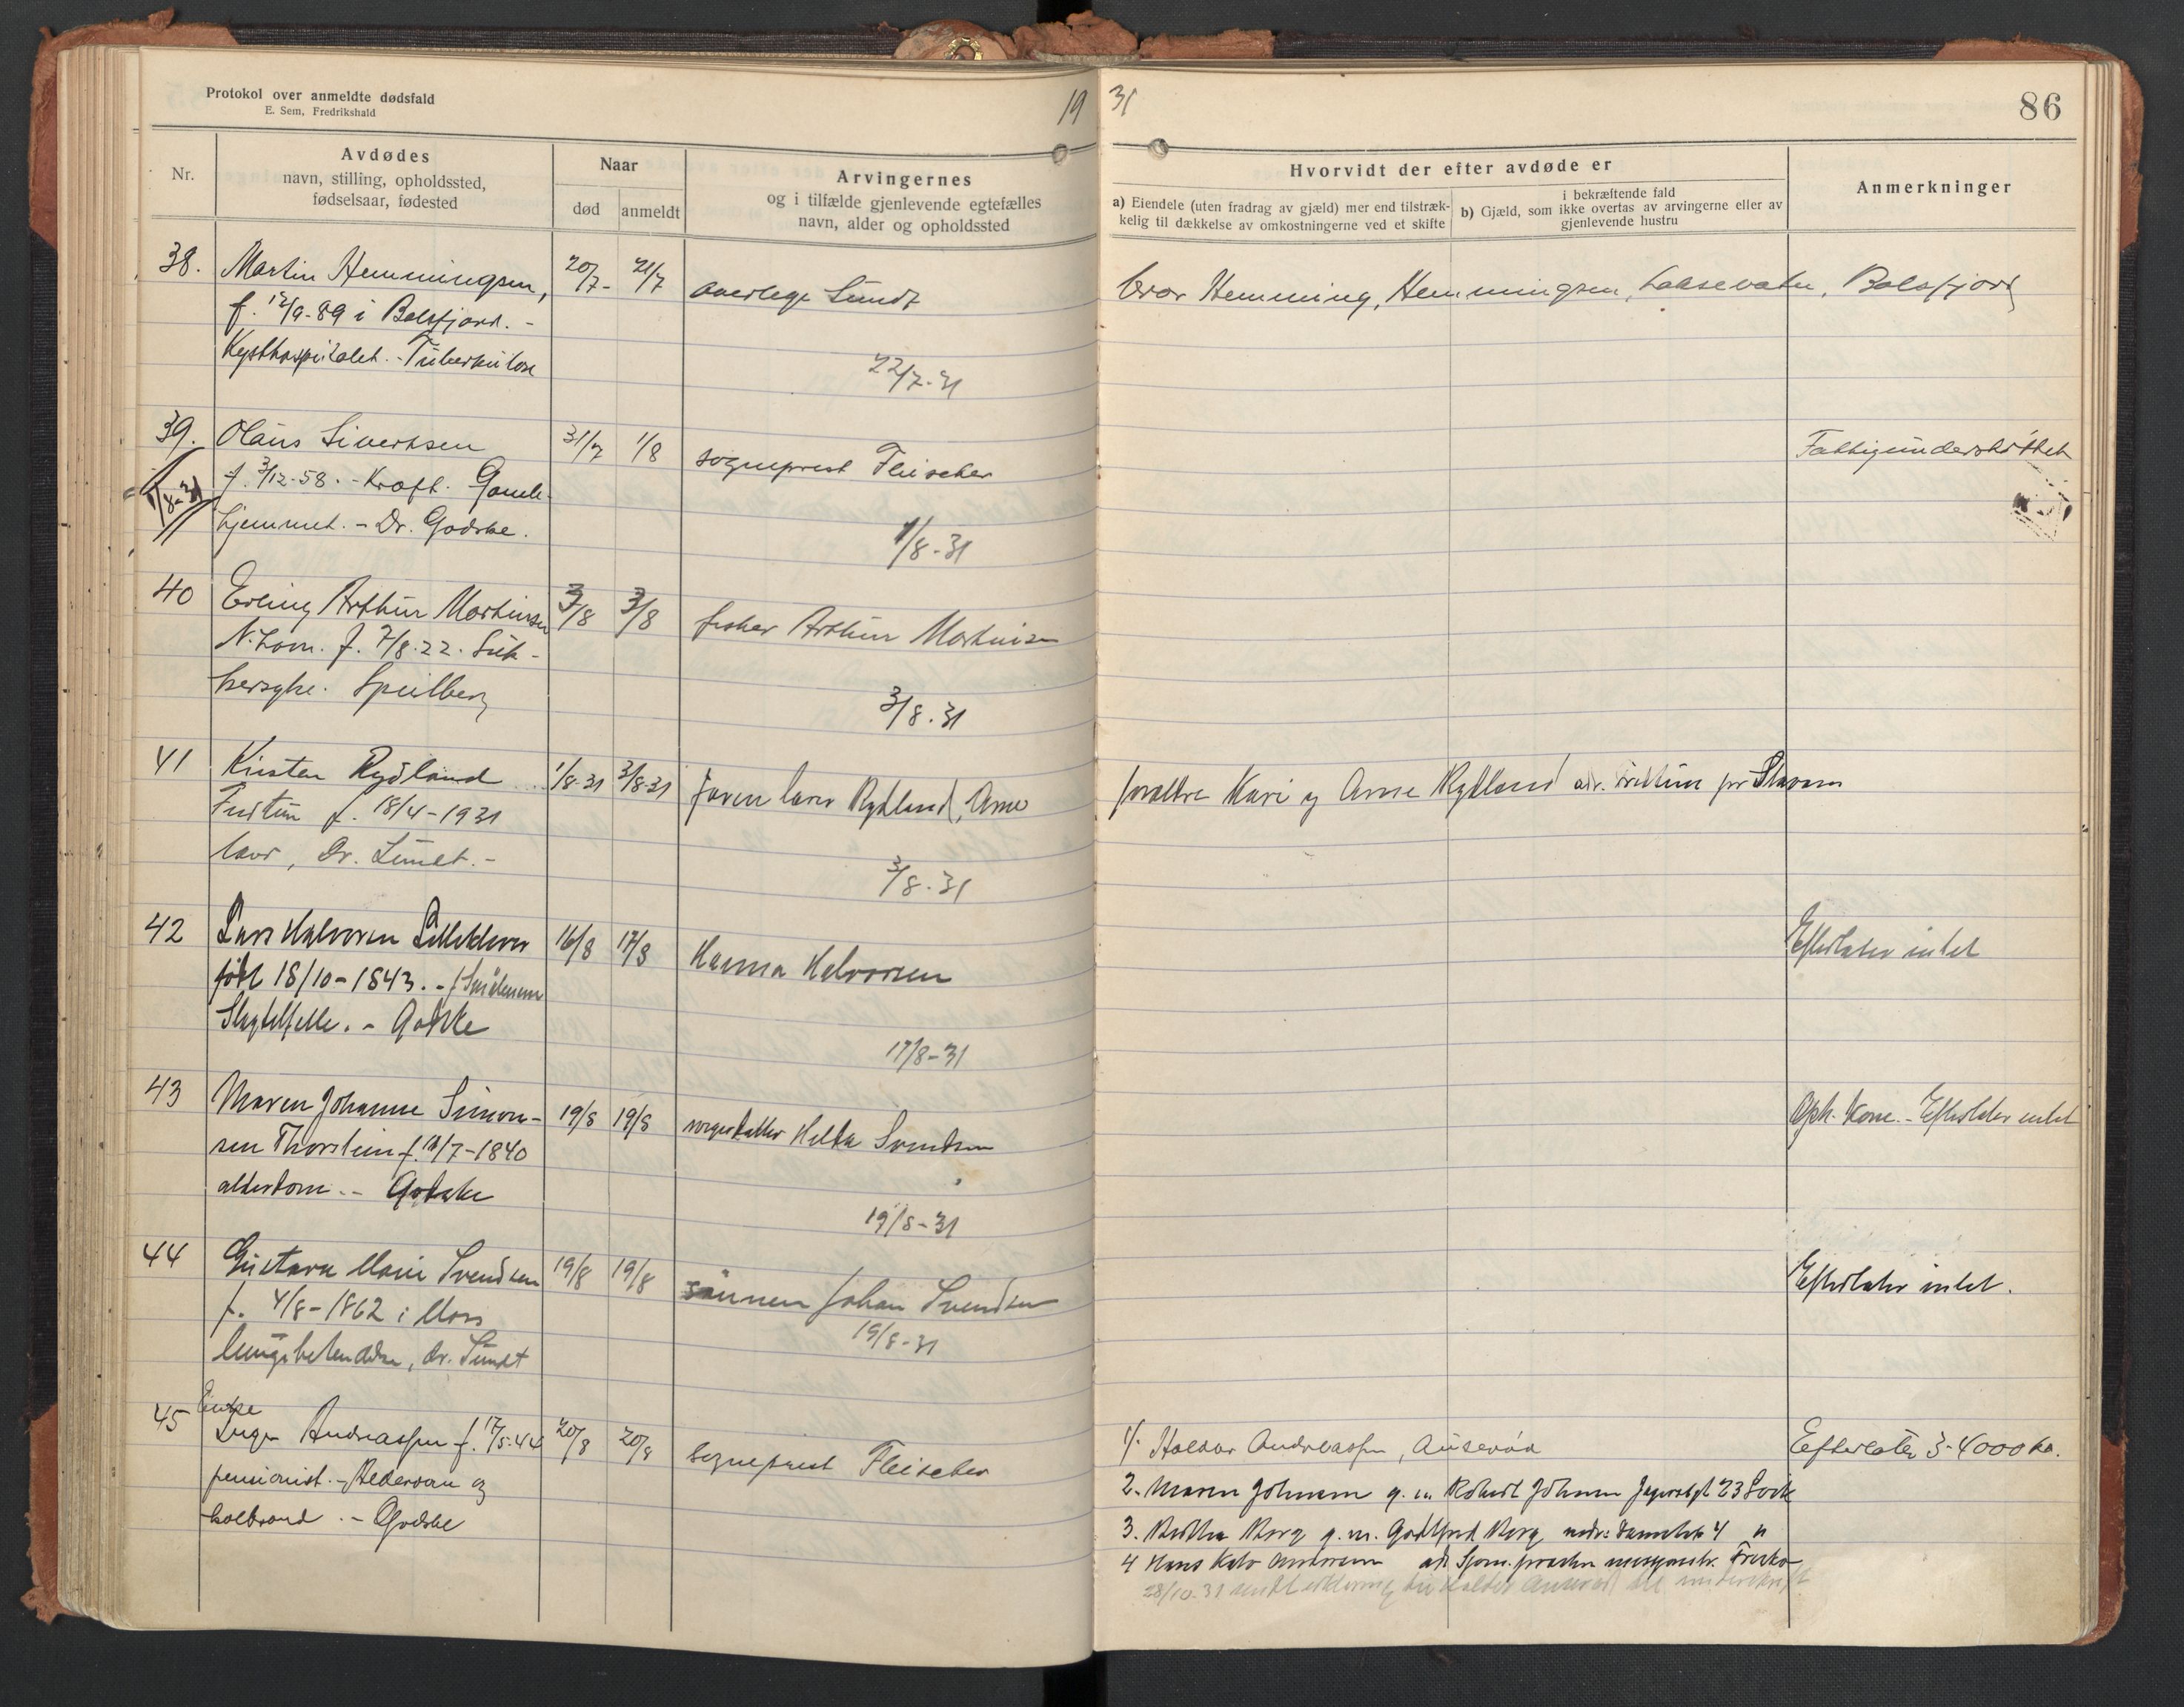 Protokol over anmeldte dødsfald
E. Sem, Fredrikshald
19
31
86
Nr.
Avdødes
navn, stilling, opholdssted,
fødselsaar, fødested
Naar
død
anmeldt
Arvingernes
og i tilfælde gjenlevende egtefælles
navn, alder og opholdssted
Hvorvidt der efter avdøde er
a) Eiendele (uten fradrag av gjæld) mer end tilstræk-
kelig til dækkelse av omkostningerne ved et skifte
i bekræftende fald
b) Gjæld, som ikke overtas av arvingerne eller av
gjenlevende hustru
Anmerkninger
38. Martin Hemmingsen, 20/7- 21/7 overlege Sundt bror Hemming Hemmingsen, Laksevatn, Balsfjord
f. 12/9-89 i Balsfjord. -
Kysthospitalet. - Tuberkulose
22/7-31
39. Olaus Sivertsen 31/7 1/8 sogneprest Fleischer Fattigunderstøttet
f. 3/12-58. - Kræft. Gamle-
1/8-31
hjemmet. - Dr. Godske.
1/8-31
40 Erling Arthur Martinsen 3/8 3/8 fisker Arthur Martinsen
N.havn. f. 7/8.22. Suk-
kersyke. Speilberg
3/8.31
41 Kirsten Rydland 1/8-31 3/8-31 faren Rydland, Arne foreldre Kari og Arne Rydland adr. Fristun pr Stavern
Fristun f. 18/4-1931
Dr. Sundt. -
3/8-31
42 Lars Halvorsen Lillekleven 16/8 17/8 Hanna Halvorsen Efterlater intet
født 18/10-1843. -
Godske
17/8-31
43 Maren Johanne Simon- 19/8 19/8 svigerdatter Helda Svendsen Oph. Kone. - Efterlater intet
sen Thorstein f. /7-1840
alderdom. - Godske
19/8-31
44 Gustava Marie Svendsen 19/8 19/8 sønnen Johan Svendsen Efterlater intet.
f. 4/8-1862 i Moss
lungebetendelse, dr. Sundt
19/8-31
Enke
45 Inger Andreassen f. 17/5.44 20/8 20/8 sogneprest Fleischer 1/. Haldor Andreassen, Auserød Efterlater 3-4000 kr.
pensionist. - Aldersvan og
kolbrand. - Godske
2. Maren Johnsen g. m. Robert Johnsen 23
3. Berg g. m. Godtfred Berg 4 "
4 Hans
28/10-31 sendt erklæring til Haldor Auserød til underskrift